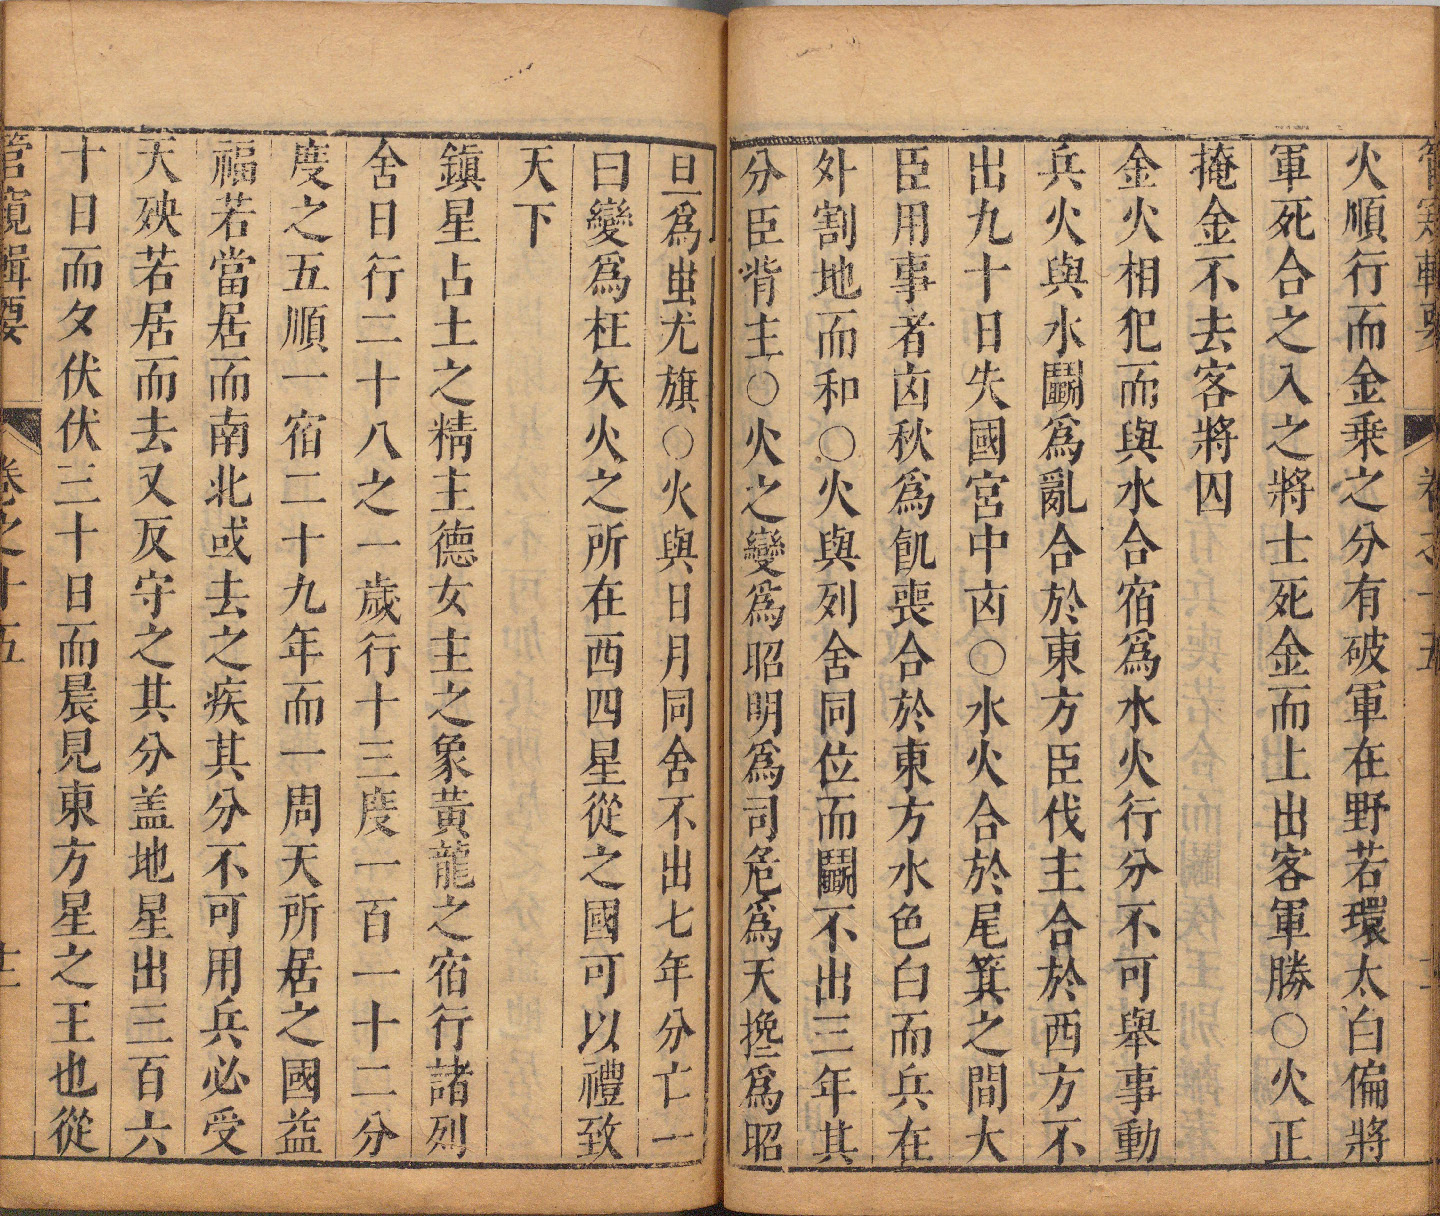 管窺輯要 卷之十五
火順行而金乘之分有破軍在野若環太白偏將
軍死合之入之將士死金而上出客軍勝○火正
掩金不去客將囚
金火相犯而與水合宿為水火行分不可舉事動
兵火與水鬭為亂合於東方臣伐主合於西方不
出九十日失國宮中凶○水火合於尾箕之間大
臣用事者凶秋為飢喪合於東方水色白而兵在
外割地而和○火與列舍同位而鬭不出三年其
分臣背主○火之變為昭明為司危為天攙為昭
旦為蚩尤旗○火與日月同舍不出七年分亡一
曰變為枉矢火之所在西四星從之國可以禮致
天下
鎮星占土之精主德女主之象黃龍之宿行諸列
舍日行二十八之一歲行十三度一百一十二分
度之五順一宿二十九年而一周天所居之國益
福若當居而南北或去之疾其分不可用兵必受
天殃若居而去又反守之其分盖地星出三百六
十日而夕伏伏三十日而晨見東方星之王也從
管窺輯要 卷之十五 十二